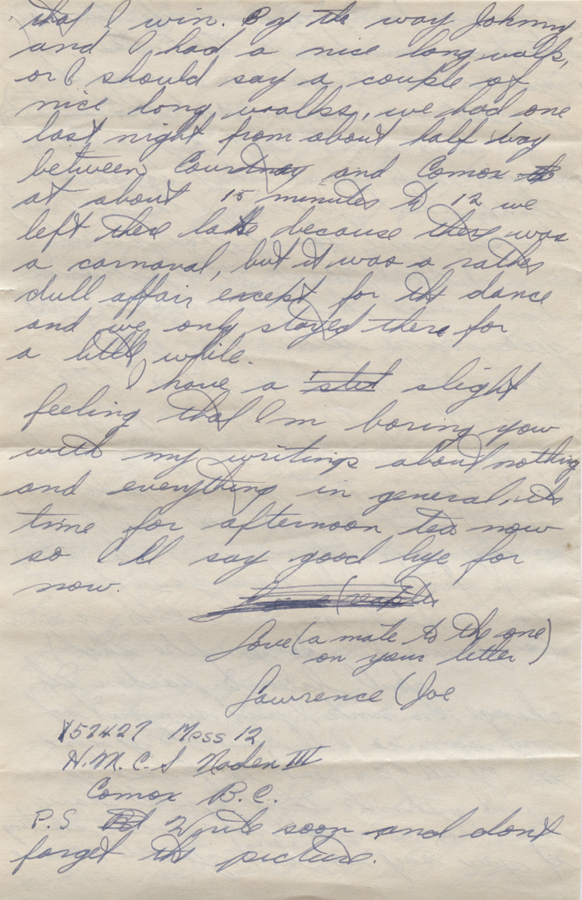 that I win. By the way Johnny
and I had a nice long walk,
or I should say a couple of
nice long walks, we had one
last night from about half way
between Courtnay and Comox
at about 15 minutes to 12 we
left there late because there was
a carnaval, but it was a rather
dull affair except for the dance
and we only stayed there for
a little while.
I have a slight
feeling that I'm boring you
with my writings about nothing
and everything in general, its
time for afternoon tea now
so I'll say good bye for
now.
Love (a mate to the one)
on your letter)
Lawrence (Joe
V52427 Mess 12
H.M.C.S Naden III
Comox B.C.
P.S Write soon and don't
forget the picture.